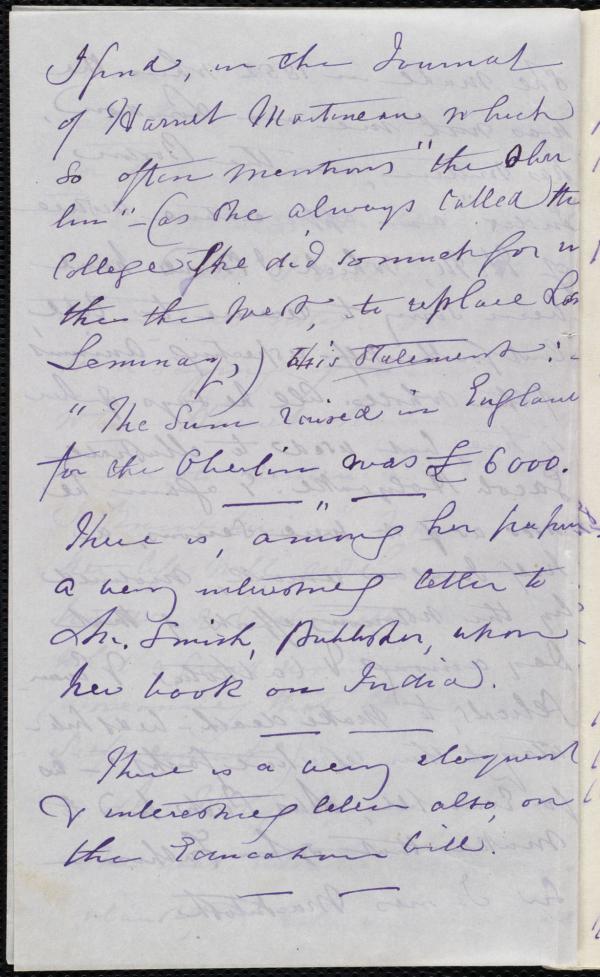 I find, in the Journal
of Harriet Martineau which
so often mentions "the Ober
lin" - (as she always called the
College she did so much for in
the the West, to replace Lane
Seminary,) this statement :-
"The Sum raised in England
for the Oberlin was £ 6000."
There is, among her papers
a very interesting letter to
Mr. Smith, Publisher, upon
her book on India.
There is a very eloquent
& interesting letter also, on
the Education bill.